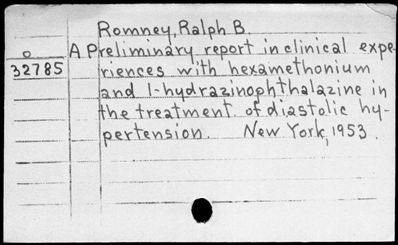 Romney, Ralph B.
o A Preliminary report in clinical expe-
32785 riences with hexamethonium
and 1-hydrazinophthalazine in
the treatment of diastolic hy-
pertension. New York, 1953.